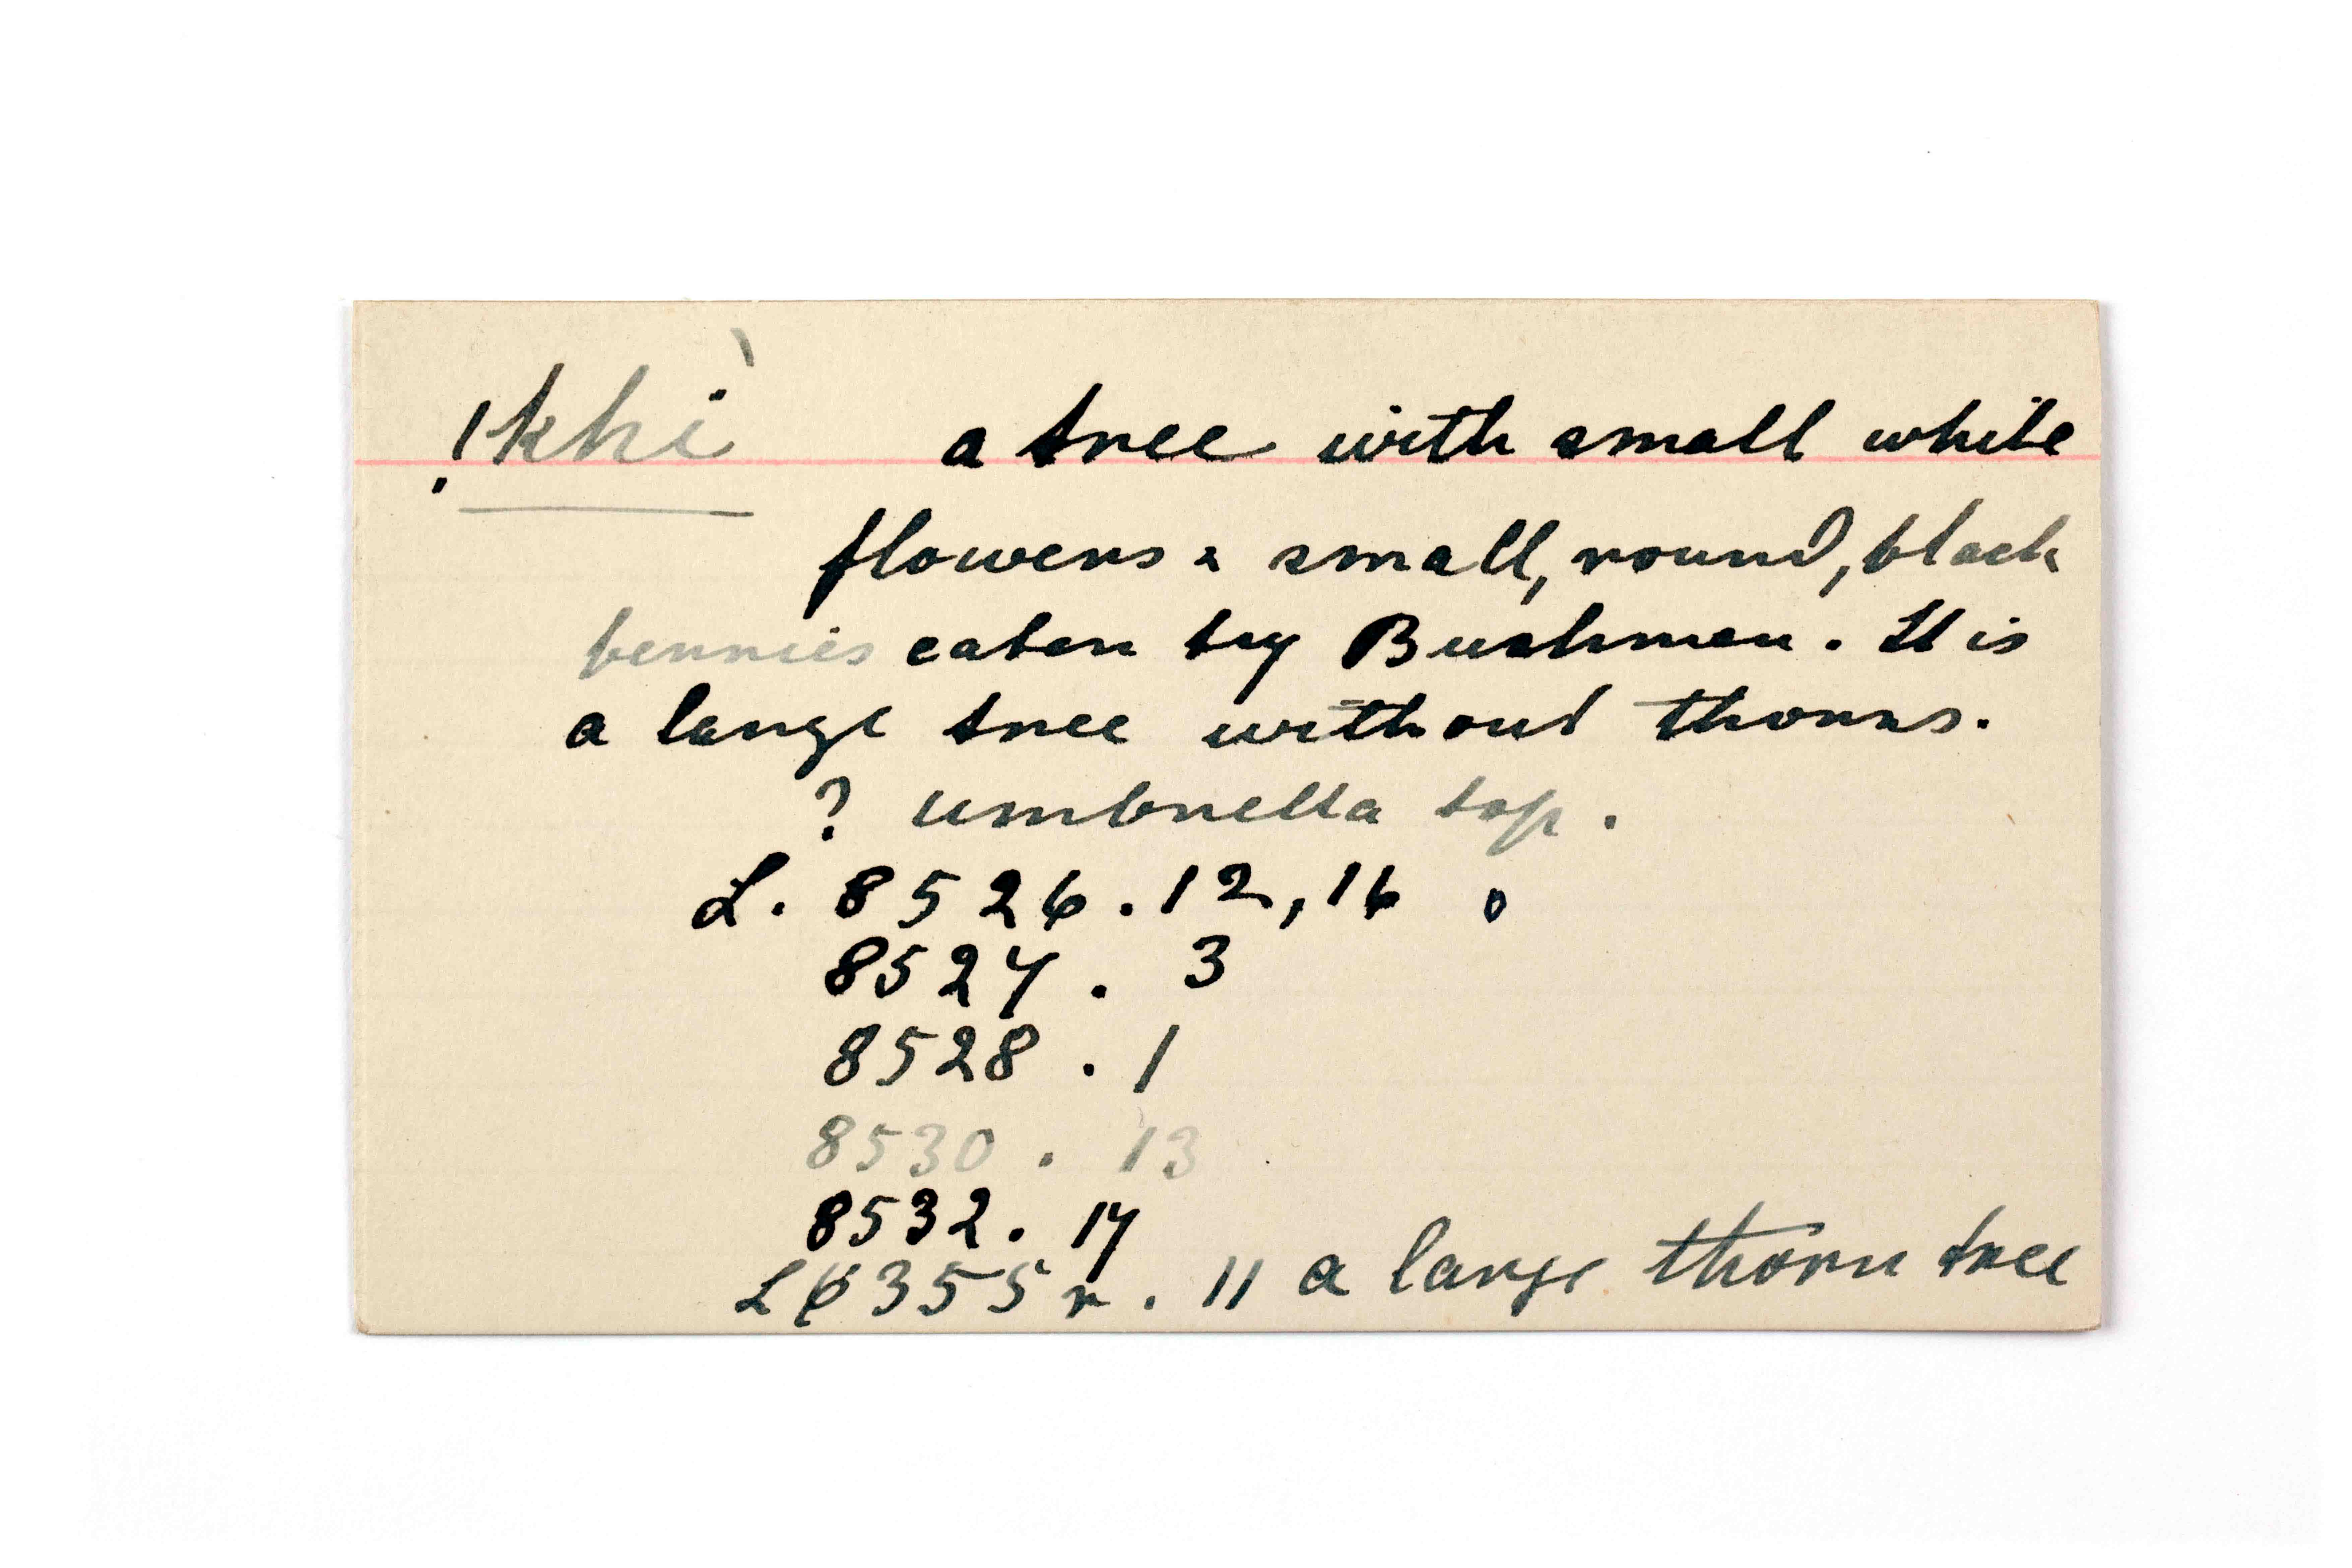 !khì a tree with small white
flowers & small, round, black
berries eaten by Bushmen. It is
a large tree without thorns.
? umbrella top.
L. 8526.12,16 0
8527. 3
8528. 1
8530. 13
8532. 17
L 6355 r. 11 a large thorn tree